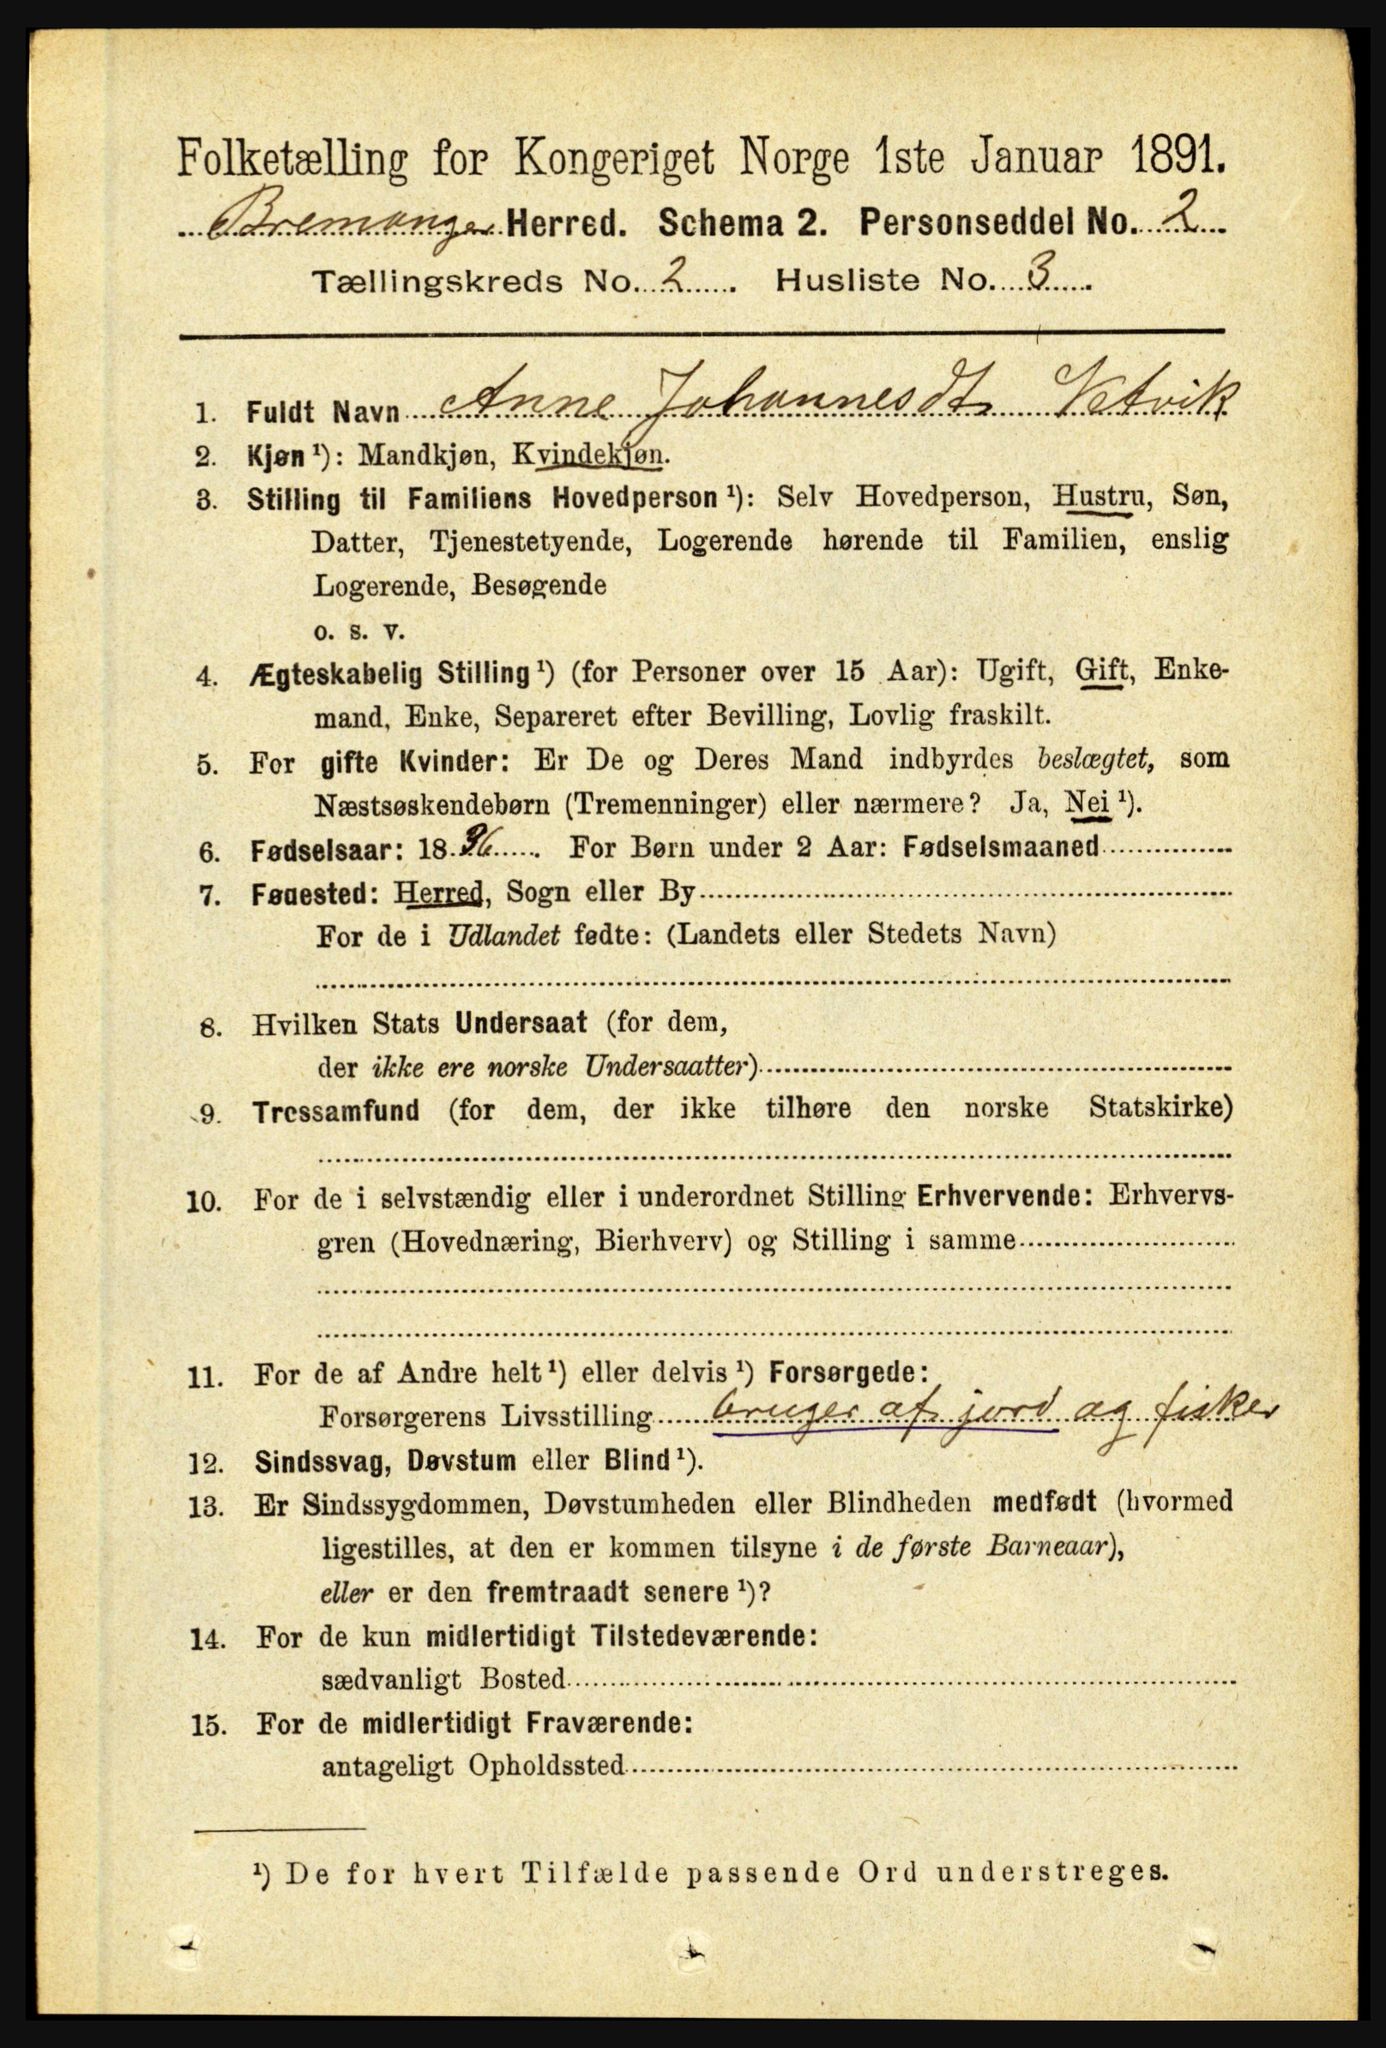 Folketælling for Kongeriget Norge 1ste Januar 1891.
Bremanger Herred. Schema 2. Personseddel No. 2
Tællingskreds No. 2. Husliste No. 3.
1. Fuldt Navn Anne Johannesdt Vetvik
2. Kjøn¹): Mandkjøn, Kvindekjøn.
3. Stilling til Familiens Hovedperson¹): Selv Hovedperson, Hustru, Søn,
Datter, Tjenestetyende, Logerende hørende til Familien, enslig
Logerende, Besøgende
o. s. v.
4. Ægteskabelig Stilling¹) (for Personer over 15 Aar): Ugift, Gift, Enke-
mand, Enke, Separeret efter Bevilling, Lovlig fraskilt.
5. For gifte Kvinder: Er De og Deres Mand indbyrdes beslægtet, som
Næstsøskendebørn (Tremenninger) eller nærmere? Ja, Nei¹).
6. Fødselsaar: 18 . For Børn under 2 Aar: Fødselsmaaned
7. Fødested: Herred, Sogn eller By
For de i Udlandet fødte: (Landets eller Stedets Navn)
8. Hvilken Stats Undersaat (for dem,
der ikke ere norske Undersaatter)
9. Trossamfund (for dem, der ikke tilhøre den norske Statskirke)
10. For de i selvstændig eller i underordnet Stilling Erhvervende: Erhvervs-
gren (Hovednæring, Bierhverv) og Stilling i samme
11. For de af Andre helt¹) eller delvis¹) Forsørgede:
Forsørgerens Livsstilling bruger af jord og fisker
12. Sindssvag, Døvstum eller Blind¹).
13. Er Sindssygdommen, Døvstumheden eller Blindheden medfødt (hvormed
ligestilles, at den er kommen tilsyne i de første Barneaar),
eller er den fremtraadt senere¹)?
14. For de kun midlertidigt Tilstedeværende:
sædvanligt Bosted
15. For de midlertidigt Fraværende:
antageligt Opholdssted
¹) De for hvert Tilfælde passende Ord understreges.